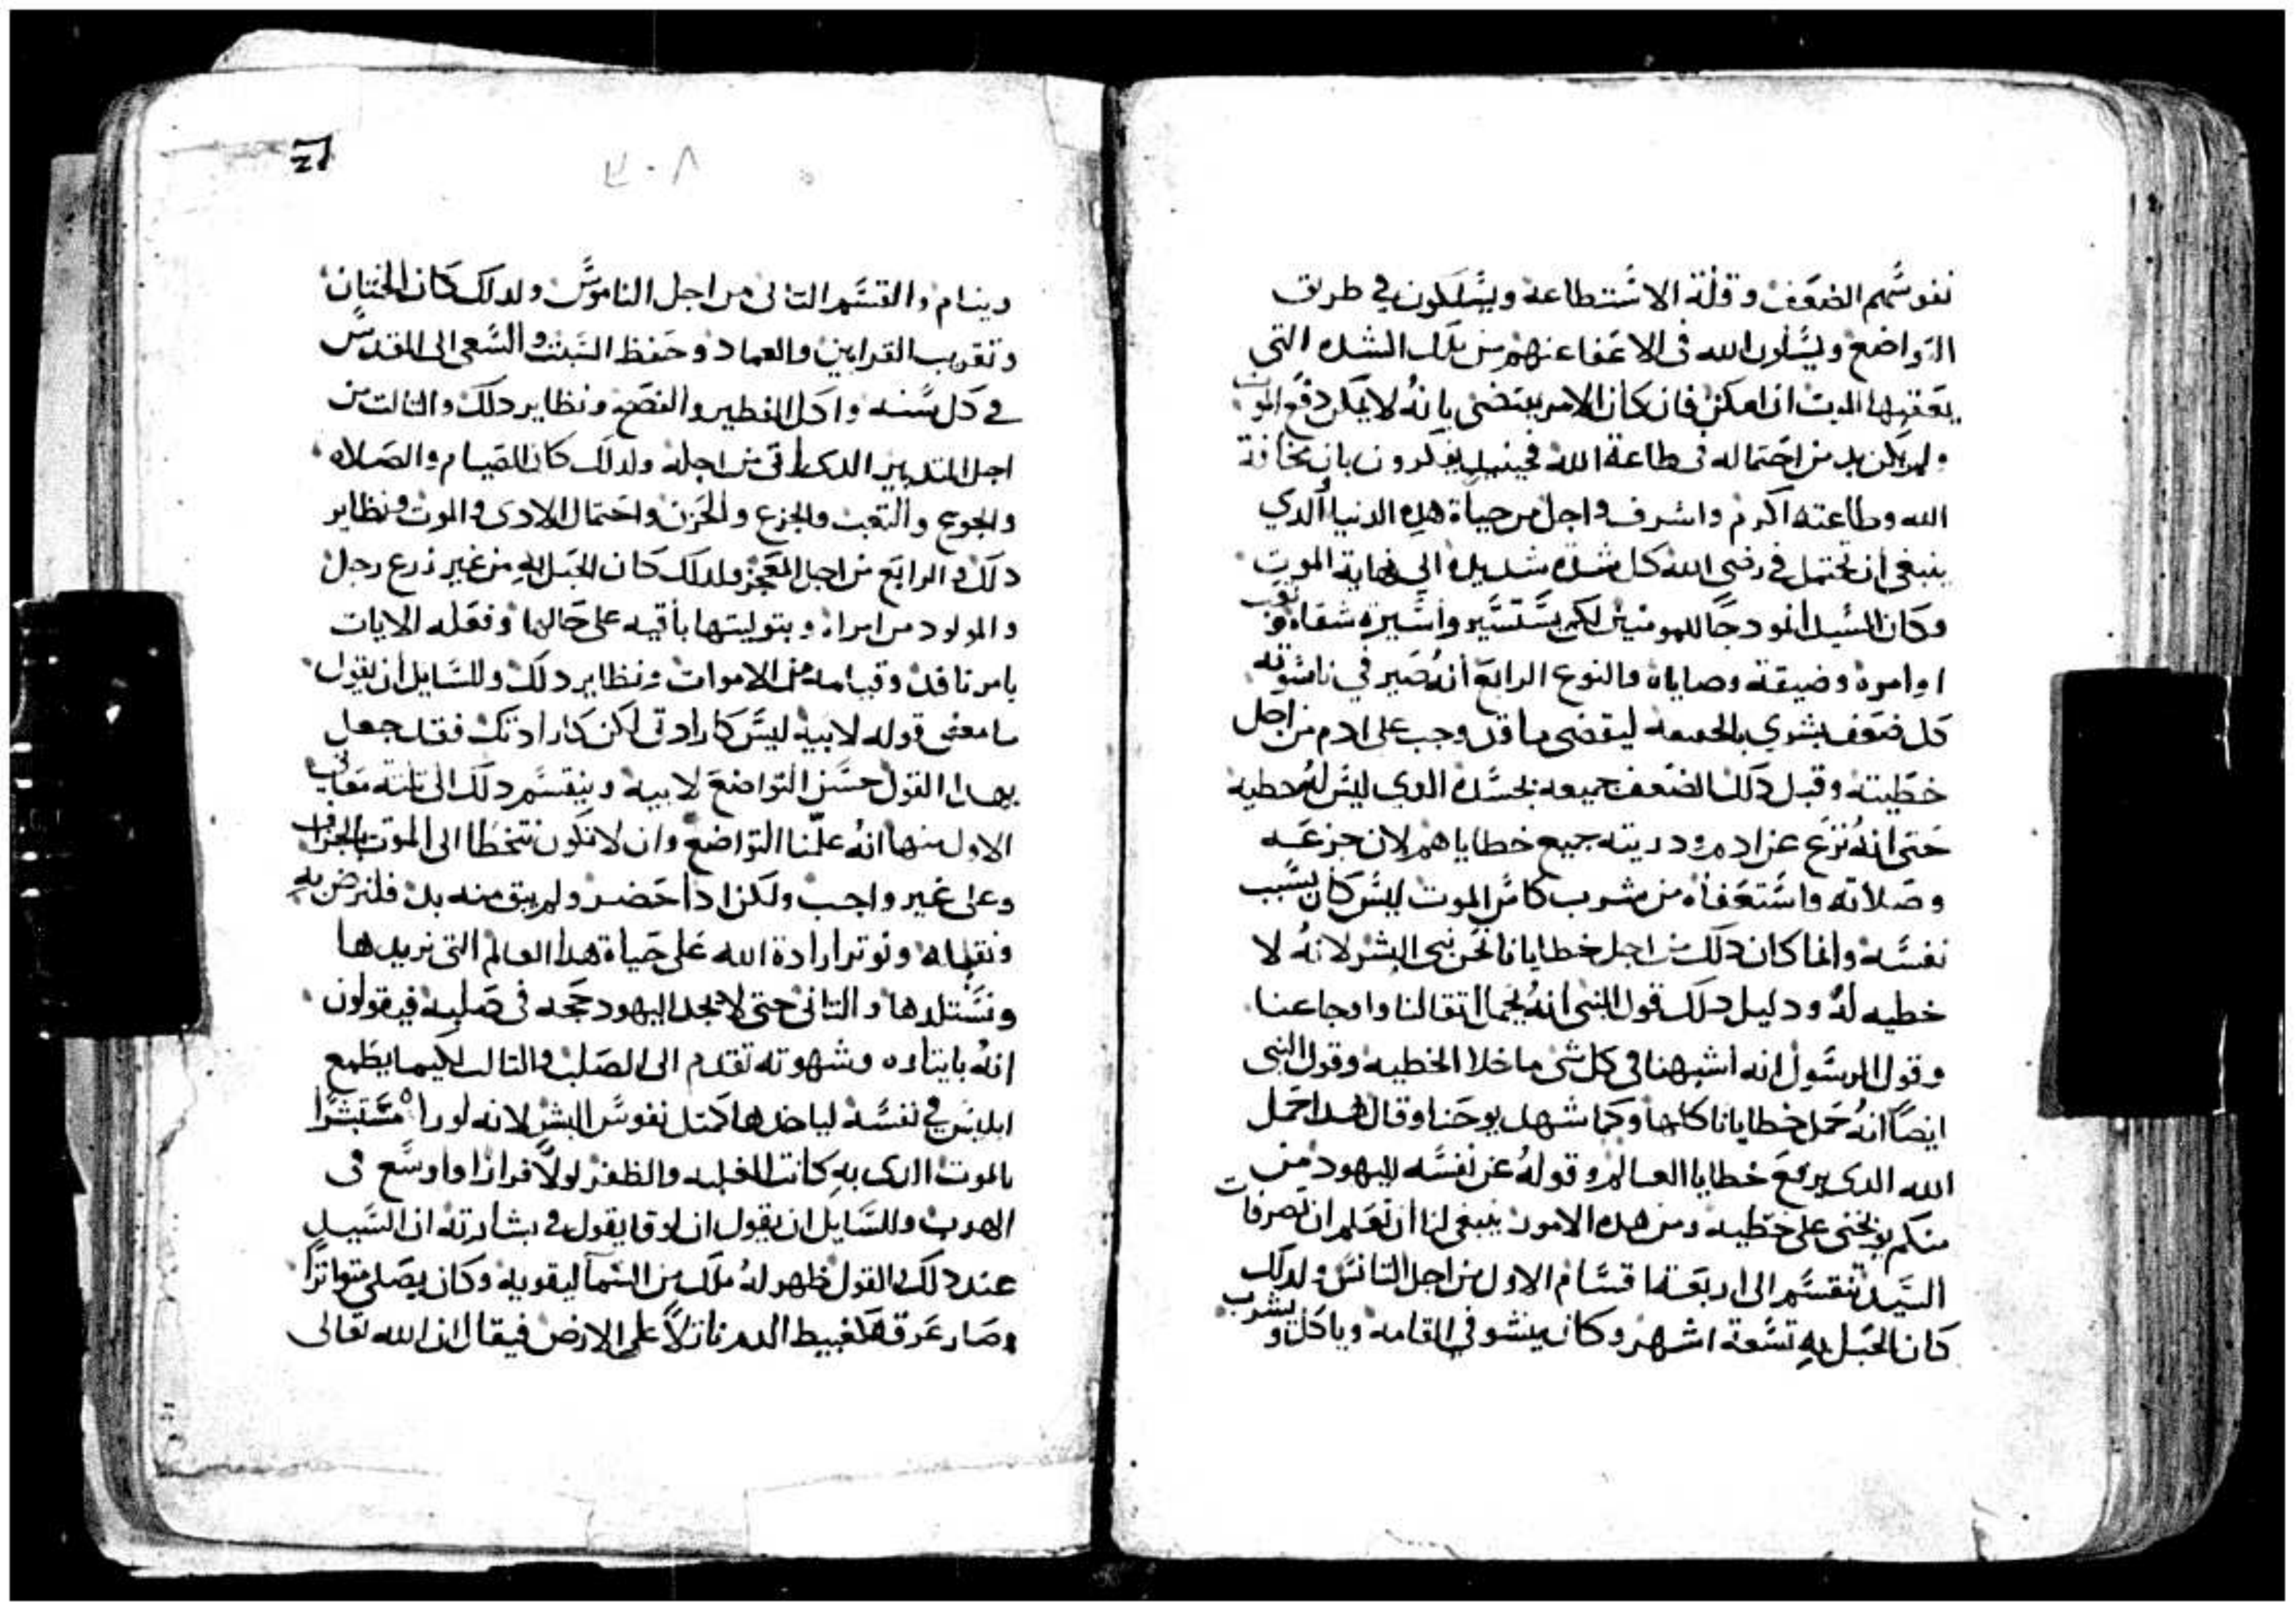 نفوسهم الضعف وقلة الاستطاعة ويسلكون في طريق
التواضع ويسلون الله في الاعفا عنهم من تلك الشده التي
يعقبها الموت ان امكن فان كان الامر يقتضى بانه لا يمكن دفع الموت
ولم يكن بد من احتماله في طاعة الله فحينيد يفكرون بان مخافة
الله وطاعته اكرم واشرف واجل من حياة هده الدنيا الدي
ينبغي ان تحتمل في رضى الله كل شدة شديده الى نهاية الموت
وكان السيد انمودجًا للمومنين لكي يستسير واسيرة شقاه وتعب
اوامره وضيقة وصاياه والنوع الرابع انه صير في ناسوته
كل ضعف بشري بالحقيقه ليقضى ما قد وجب على ادم من اجل
خطيته وقبل دلك الضعف جميعه بجسده الدى ليس له خطيه
حتى انه نزع عن ادم ودريته جميع خطاياهم لان جزعه
وصلاته واستعفاه من شرب كاس الموت ليس كان بسبب
نفسه وانما كان دلك من اجل خطايانا نحن بني البشر لانه لا
خطيه له ودليل دلك قول النبي انه يحمل اتقالنا واوجاعنا
وقول الرسول انه اشبهنا في كل شى ما خلا الخطيه وقول النبي
ايضًا انه حمل خطايانا كلها وكما شهد يوحنا وقال هدا حمل
الله الدى يرفع خطايا العالم وقوله عن نفسه لليهود من
منكم يوبخني على خطيه ومن هده الامور ينبغي لنا ان نعلم ان تصرفات
السيد تنقسم الى اربعة اقسام الاول من اجل التانس ولدلك
كان الحبل به تسعة اشهر وكان ينشو في القامه وياكل ويشرب
٣٠٨
وينام والقسم التانى من اجل الناموس ولدلك كان الختان
وتقريب القرابين والعماد وحفظ السبت والسعي الى المقدس
في كل سنه واكل الفطير والفصح ونظاير دلك والتالت من
اجل التدبير الدى اتى من اجله ولدلك كان الصيام والصلاه
والجوع والتعب والجزع والحزن واحتمال الادى والموت ونظاير
دلك والرابع من اجل المعجز ولدلك كان الحبل به من غير زرع رجل
والمولود من امراه وبتوليتها باقيه على حالها وفعله الايات
بامر نافد وقيامه من الاموات ونظاير دلك وللسايل ان يقول
ما معنى قوله لابيه ليس كارادتى لكن كارادتك فقد جعل
بهدا القول حسن التواضع لابيه وينقسم دلك الى تلتة معاني
الاول منها انه علمنا التواضع وان لا نكون نتخطا الى الموت بالجزاف
وعلى غير واجب ولكن ادا حضر ولم يبق منه بد فلنرض به
ونقبله ونوتر ارادة الله على حياة هدا العالم التي نريدها
ونستلدها والتانى حتى لا يجد اليهود حجه في صلبه فيقولون
انه بايتاره وشهوته تقدم الى الصلب والتالت لكيما يطمع
ابليس في نفسه لياخدها كمتل نفوس البشر لانه لو راه مستبشرًا
بالموت الدى به كانت الغلبه والظفر لولا فرارًا واوسع في
الهرب وللسايل ان يقول ان لوقا يقول في بشارته ان السيد
عند دلك القول ظهر له ملك من السما ليقويه وكان يصلي متواترًا
وصار عرقه كعبيط الدم نازلاً على الارض فيقال ان الله تعالى